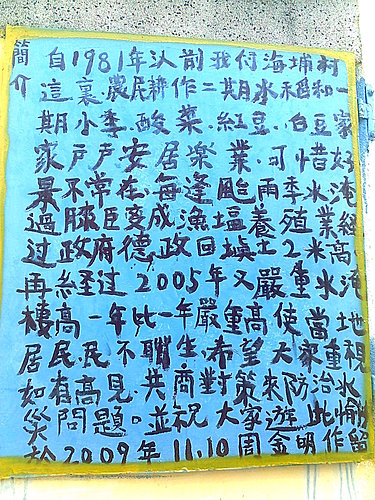 簡介
自1981年以前我们海埔村
這裏農民耕作二期水稻和一
期小季.酸菜.紅豆.白豆家
家戸戸安居楽業.可惜好
景不常在.每逢颱雨季水淹
過膝臣変成漁塭養殖業經
过政府德政回填土2米高
再經过2005年又嚴重水淹
樓高一年比一年嚴重高使當地
居民.民不聊生.希望大家重視
如有高見.共商對策來防治水
災問題。並祝大家遊此愉快
於2009年11.10周金明作留